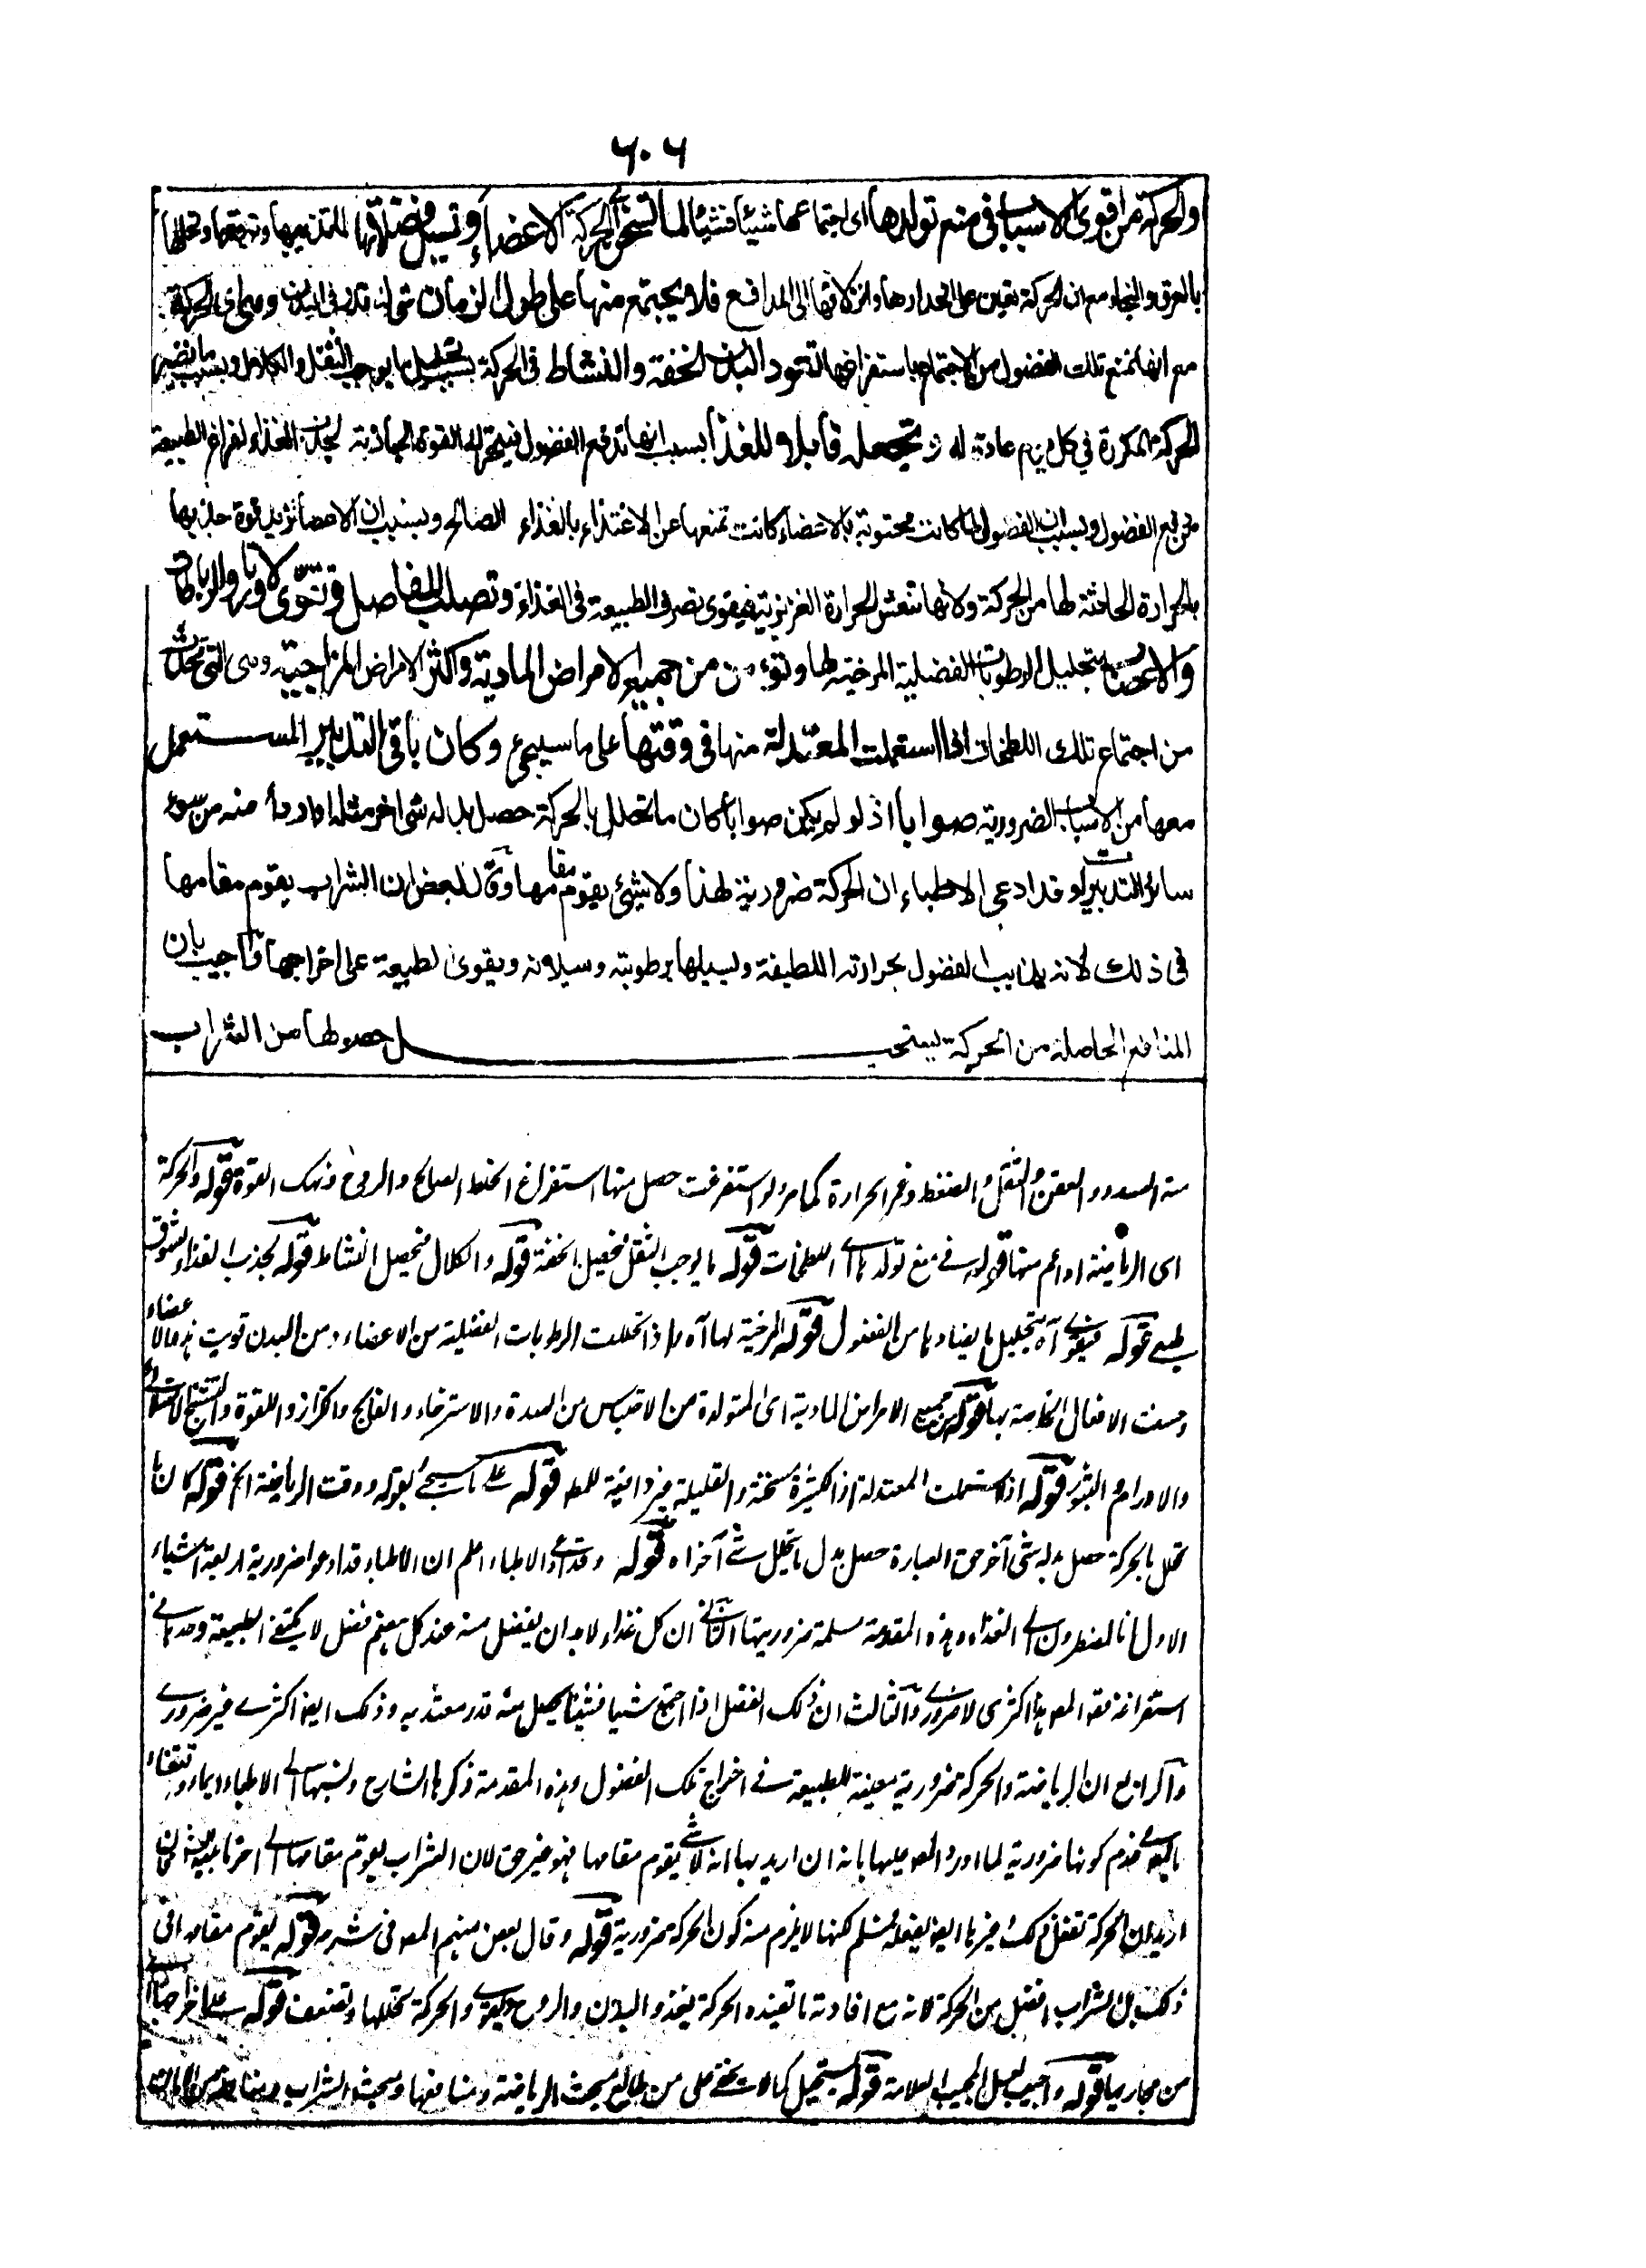 ٦٠٦
والحركة من اقوى الاسباب فى منع تولدها اى اجتماعها شيئا فشيئا لما تسخن الحركة الاعضاء وتسيل فضلاتها
بالعرق والبخار مع ان الحركة تعين على انحدارها وانزلاقها الى المدافع فلا يجتمع منها على طول الزمان شئ له قدر فى البدن وهى اى الحركة
مع انها تمنع تلك الفضول من الاجتماع باستفراغها تعود البدن الخفة والنشاط فى الحركة بسبب تحليل ما يوجب الثقل والكلال وبسبب ما تصير
الحركة المكررة في كل يوم عادة له وتجعله قابلا للغذا بسبب انها تدفع الفضول فيتحرك القوة الجاذبة لجذب الغذاء لفراغ الطبيعة
من دفع الفضول وبسبب ان الفضول لما كانت محتوية بالاعضاء كانت تمنعها عن الاغتذاء بالغذاء الصالح وبسبب ان الاعضا تزيد قوة جذبها
بالحرارة الحادثة لها من الحركة ولانها تنعش الحرارة الغريزية فيقوى تصرف الطبيعة فى الغذاء وتصلب المفاصل وتقوى الاوتار والرباطات
والاعصاب بتحليل الرطوبات الفضلية المرخية لها وتؤمن من جميع الامراض المادية واكثر الامراض المزاجية وهى التى تحدث
من اجتماع تلك اللطخات اذا استعملت المعتدلة منها فى وقتها على ما سيجئ وكان باقى التدبير المستعمل
معها من الاسباب الضرورية صوابا اذ لو لم يكن صوابا كان ما تحلل بالحركة حصل بدله شئ اخر مثله او اردأ منه من سوء
سائر التدبير وقد ادعى الاطباء ان الحركة ضرورية لهذا ولا شئ يقوم مقامها وقال بعض ان الشراب يقوم مقامها
فى ذلك لانه يذيب الفضول بحرارته اللطيفة ويسيلها برطوبته وسيلانه ويقوى الطبيعة على اخراجها واجيب بان
المنافع الحاصلة من الحركة يستحيل حصولها من الشراب
منه السدد والعفن والثقل والضغط وغمر الحرارة كما مر ولو استفرغت حصل منها استفراغ الخلط الصالح والروح ونهك القوة قوله والحركة
اى الرياضة او اعم منها قوله فى منع تولدها اى اللطخات قوله ما يوجب الثقل فيحصل الخفة قوله والكلال فيحصل النشاط قوله لجذب الغذاء بشوق
طبعى قوله فيقوى آه بتحليل ما يضادها من الفضول قوله المرخية لها آه واذا تحللت الرطوبات الفضلية من الاعضاء ومن البدن قويت هذه الاعضاء
وحسنت الافعال الخاصة بها قوله من جميع الامراض المادية اى المتولدة من الاحتباس من السدة والاسترخاء والفالج والكزاز واللقوة والتشنج الامتلائى
والاورام والبثور قوله اذا استعملت المعتدلة اذ الكثيرة مسخنة والقليلة غير وافية للمط قوله على ما سيجئ بقوله ووقت الرياضة الخ قوله كان ما
تحلل بالحركة حصل بدله شئ آخر حق العبارة حصل بدل ما تحلل شئ آخر آه قوله وقد ادعى الاطباء اعلم ان الاطباء قد ادعوا ضرورية اربعة اشياء
الاول انا لمضطرون الى الغذاء وهذه المقدمة مسلمة ضروريتها الثانى ان كل غذاء لا بد ان يفضل منه عند كل هضم فضل لا يكتفى الطبيعة وحدها فى
استفراغه فقد المص هذا اكثرى لا ضرورى والثالث ان ذلك الفضل اذا اجتمع شيئا فشيئا يحصل منه قدر معتد به وذلك ايضا اكثرى غير ضرورى
والرابع ان الرياضة والحركة ضرورية معينة للطبيعة فى اخراج تلك الفضول وهذه المقدمة ذكرها الشارح ونسبها الى الاطباء
عدم كونها ضرورية لما اورد المص عليها بانه ان اريد بها انه لا شئ يقوم مقامها فهو غير حق لان الشراب يقوم مقامها الى آخر
اريد ان الحركة تفعل ذلك وغيرها ايضا يفعله فمسلم لكنها لا يلزم منه كون الحركة ضرورية قوله وقال بعض منهم المص فى شرحه قوله يقوم مقامه فى
ذلك بل الشراب افضل من الحركة لانه مع افادته ما تفيده الحركة يغذو البدن والروح ويقوى والحركة تحللها وتضعف قوله على اخراجها
من مجاريها قوله واجيب لعل المجيب العلامة قوله يستحيل كما لا يخفى على من طالع مبحث الرياضة ومنافعها ومبحث الشراب